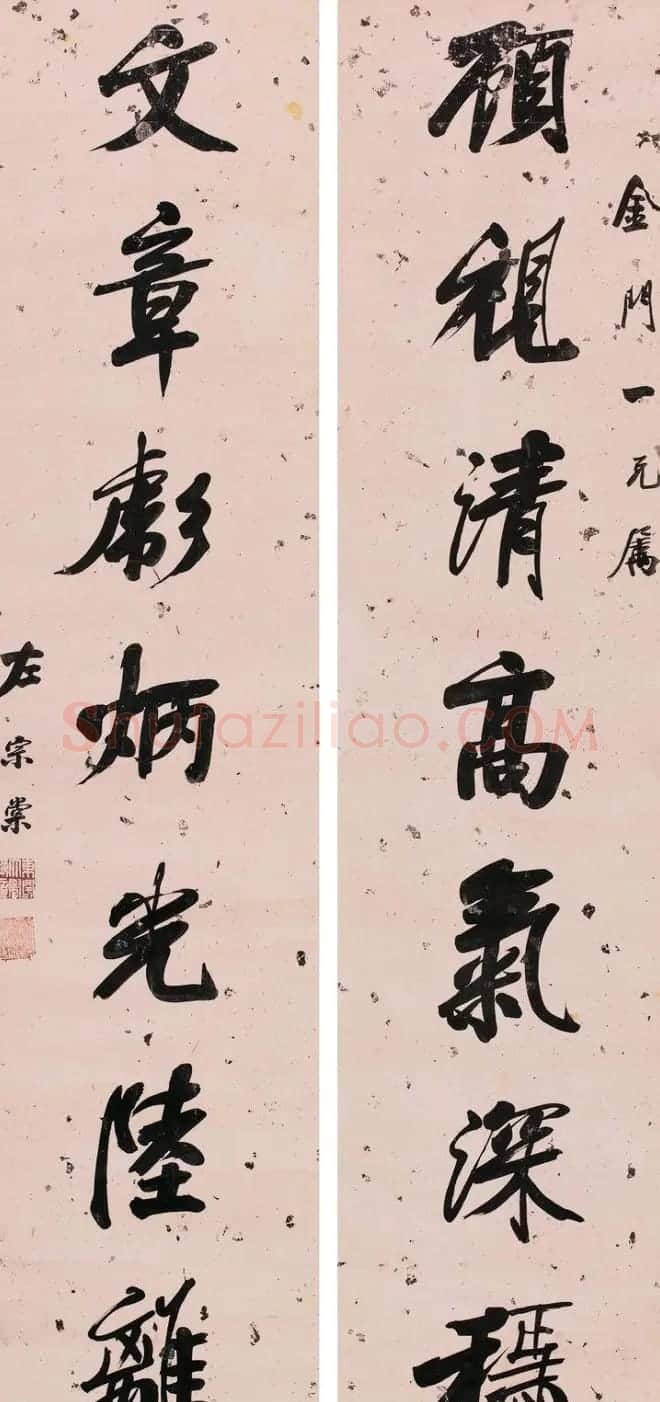 金門一兄属
顧視清高氣深穩
文章彪炳光陸離
左宗棠
Shufaziliao.COM